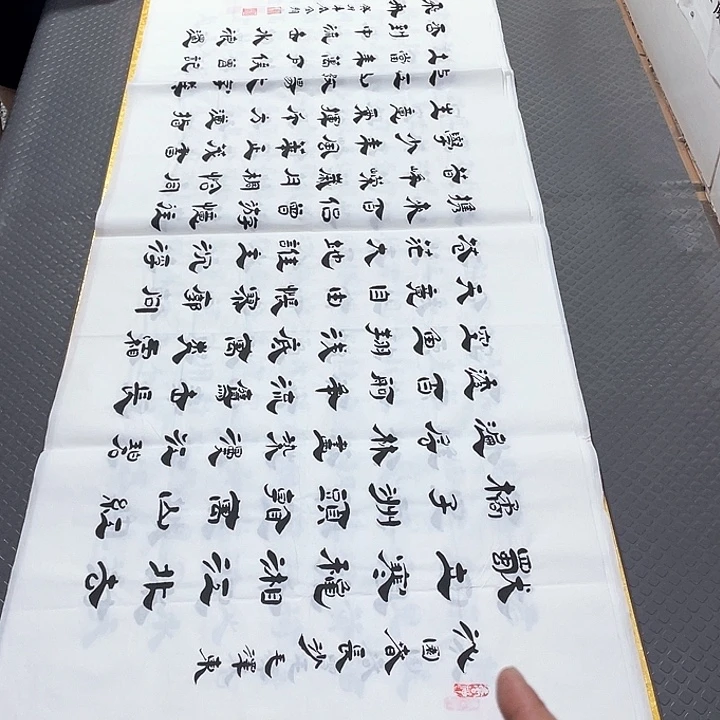 沁園春 長沙 毛澤東
獨立寒穐湘江北去
橘子洲頭看萬山紅
遍層林盡染漫江碧
透百舸爭流鷹擊長
空魚翔淺底萬類霜
天競自由悵寥廓問
蒼茫大地誰主沉浮
攜來百侶曾游憶往
昔崢嶸歲月稠恰同
學少年風華正茂書
生意氣揮斥方遒指
点江山激揚文字糞
土當年萬戶侯曾記
否到中流擊水浪遏
飛舟